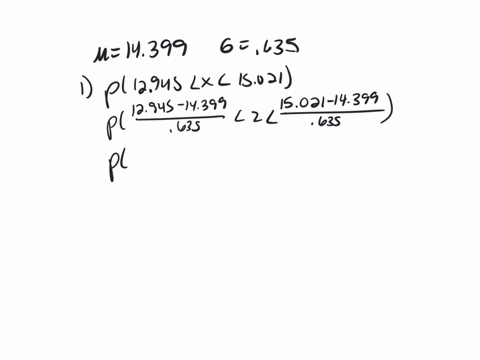 μ=14.399 σ=.635
1) p(12.945<x<15.021)
p(12.945-14.399/.635 <z< 15.021-14.399/.635)
p(